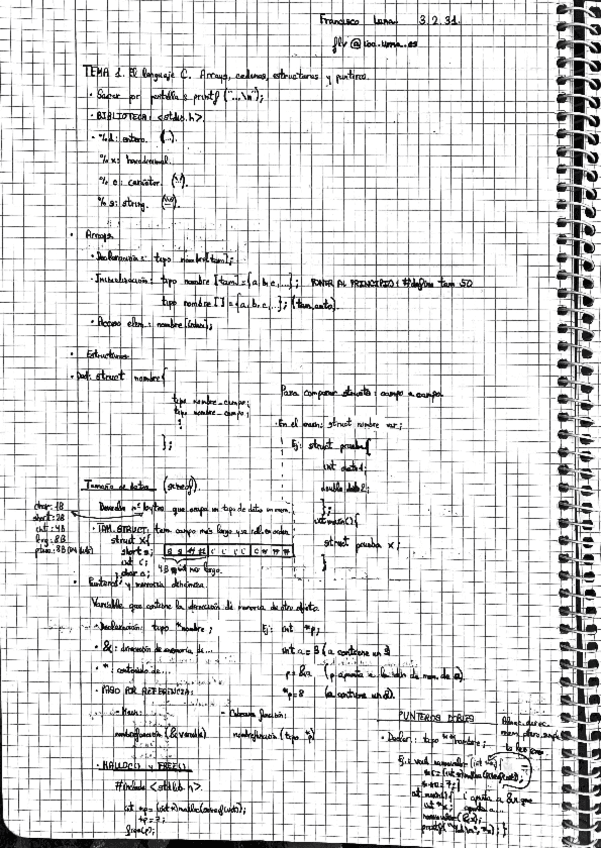 Francisco Luna 3.2.31.
flv@lcc.uma.es
TEMA 1. El lenguaje C. Arrays, cadenas, estructuras y punteros.
· Sacar por pantalla: printf ("...\n");
· BIBLIOTECA: <stdio.h>.
· %d: entero. (...).
%x: hexadecimal.
%c: carácter. ('.').
%s: string. ("...").
· Arrays
· Declaración: tipo nombre[tam];
· Inicialización: tipo nombre [tam] = {a, b, c, ...}; PONER AL PRINCIPIO: #define tam 50
tipo nombre [ ] = {a, b, c, ...}; (tam auto).
· Acceso elem.: nombre [índice];
· Estructuras
· Def: struct nombre {
tipo nombre_campo;
tipo nombre_campo;
};
Para comparar structs: campo a campo
· En el main: struct nombre var;
Ej: struct prueba {
int dato1;
double dato2;
};
int main() {
struct prueba x;
}
Tamaño de datos (sizeof).
Devuelve nº bytes que ocupa un tipo de dato en mem.
char: 1B
short: 2B
int: 4B
long: 8B
· TAM. STRUCT: tam campo más largo
struct X {
short s;
int i;
char c;
4B más largo.
· Punteros y memoria dinámica.
Variable que contiene la dirección de memoria de otro objeto.
· Declaración: tipo *nombre;
· &: dirección de memoria de...
· *: contenido de...
· PASO POR REFERENCIA:
- Main:
nombrefunción (&variable)
- Cabecera función:
nombrefunción (tipo *p)
Ej: int *p;
int a = 3 (a contiene un 3)
p = &a (p apunta a la dir. de mem. de a).
*p = 8 (a contiene un 8).
· MALLOC() y FREE()
#include <stdlib.h>
int *p = (int*) malloc(sizeof(int));
*p = 7;
free(p);
PUNTEROS DOBLES
· Declar.: tipo **nombre;